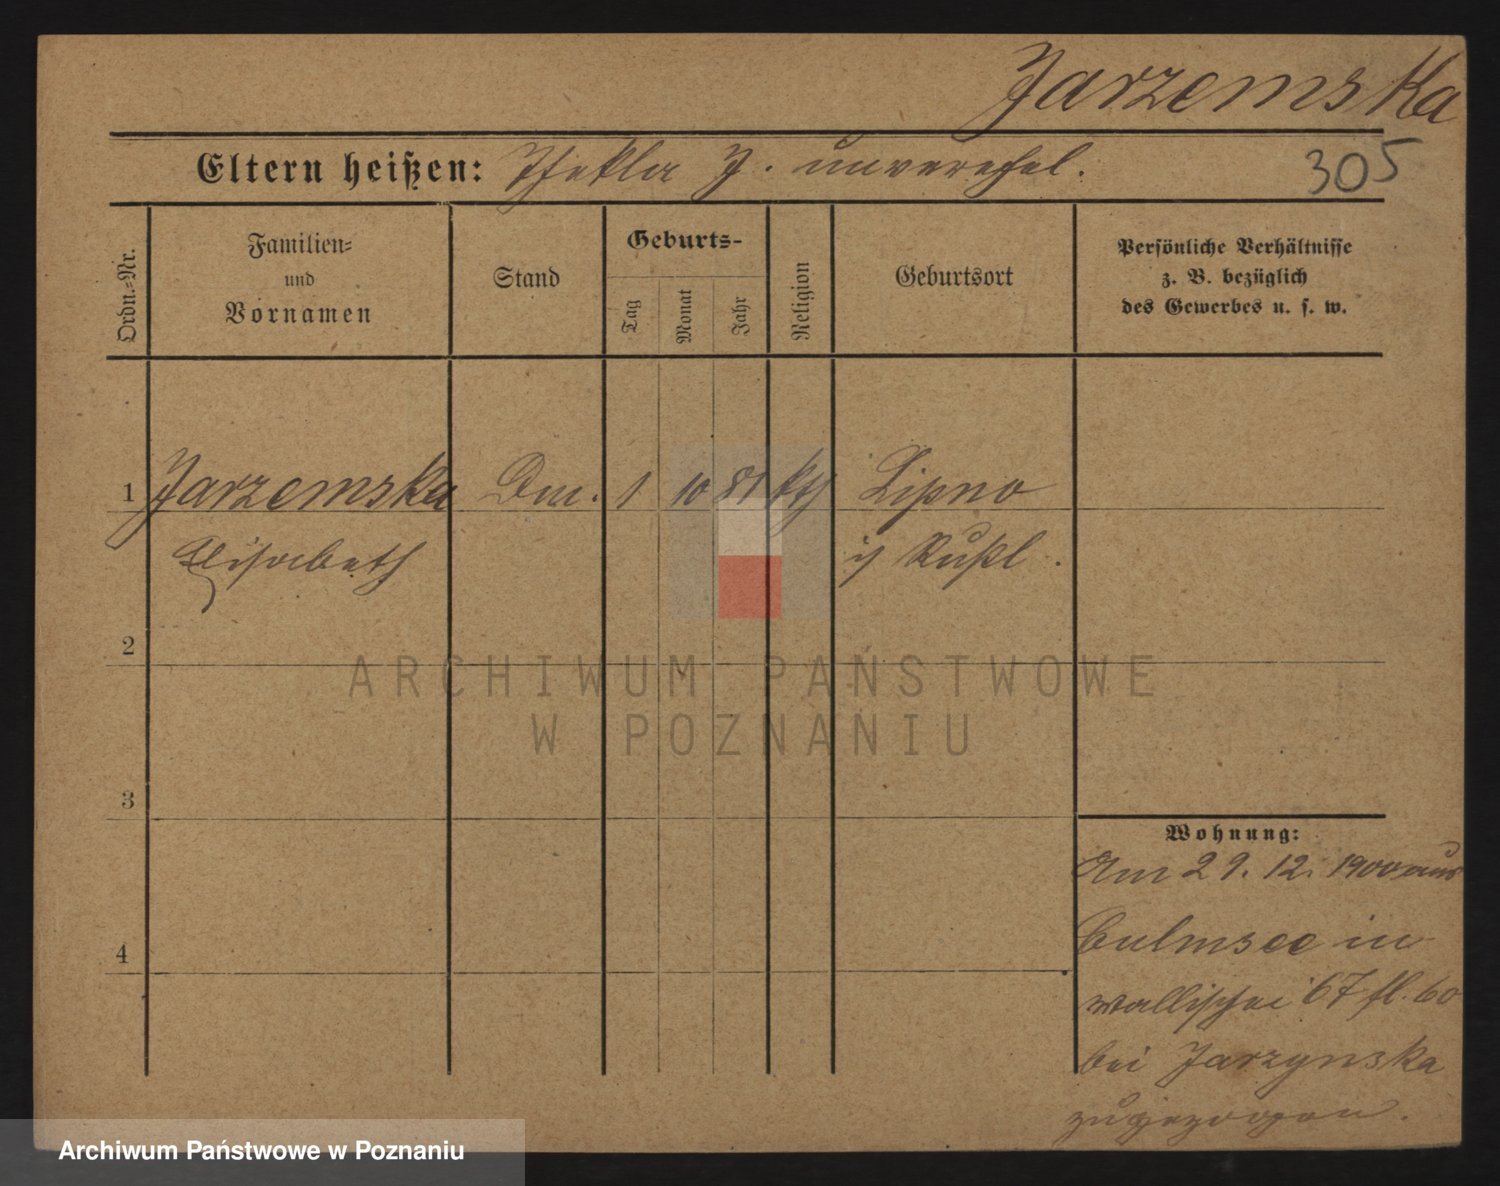 Jarzemska
Eltern heißen: Thekla J. unverehel.
305
Ordn.-Nr.
Familien-
und
Vornamen
Stand
Geburts-
Tag
Monat
Jahr
Religion
Geburtsort
Persönliche Verhältnisse
z. B. bezüglich
des Gewerbes u. s. w.
1 Jarzemska 1 10 kth Lipno
Elisabeth i/ Rußl.
2
ARCHIWUM PAŃSTWOWE
W POZNANIU
3
Wohnung:
Am 29. 12. 1900 aus
4 Culmsee in
Wallischei 67 fl. 60
bei Jarzynska
zugezogen.
Archiwum Państwowe w Poznaniu